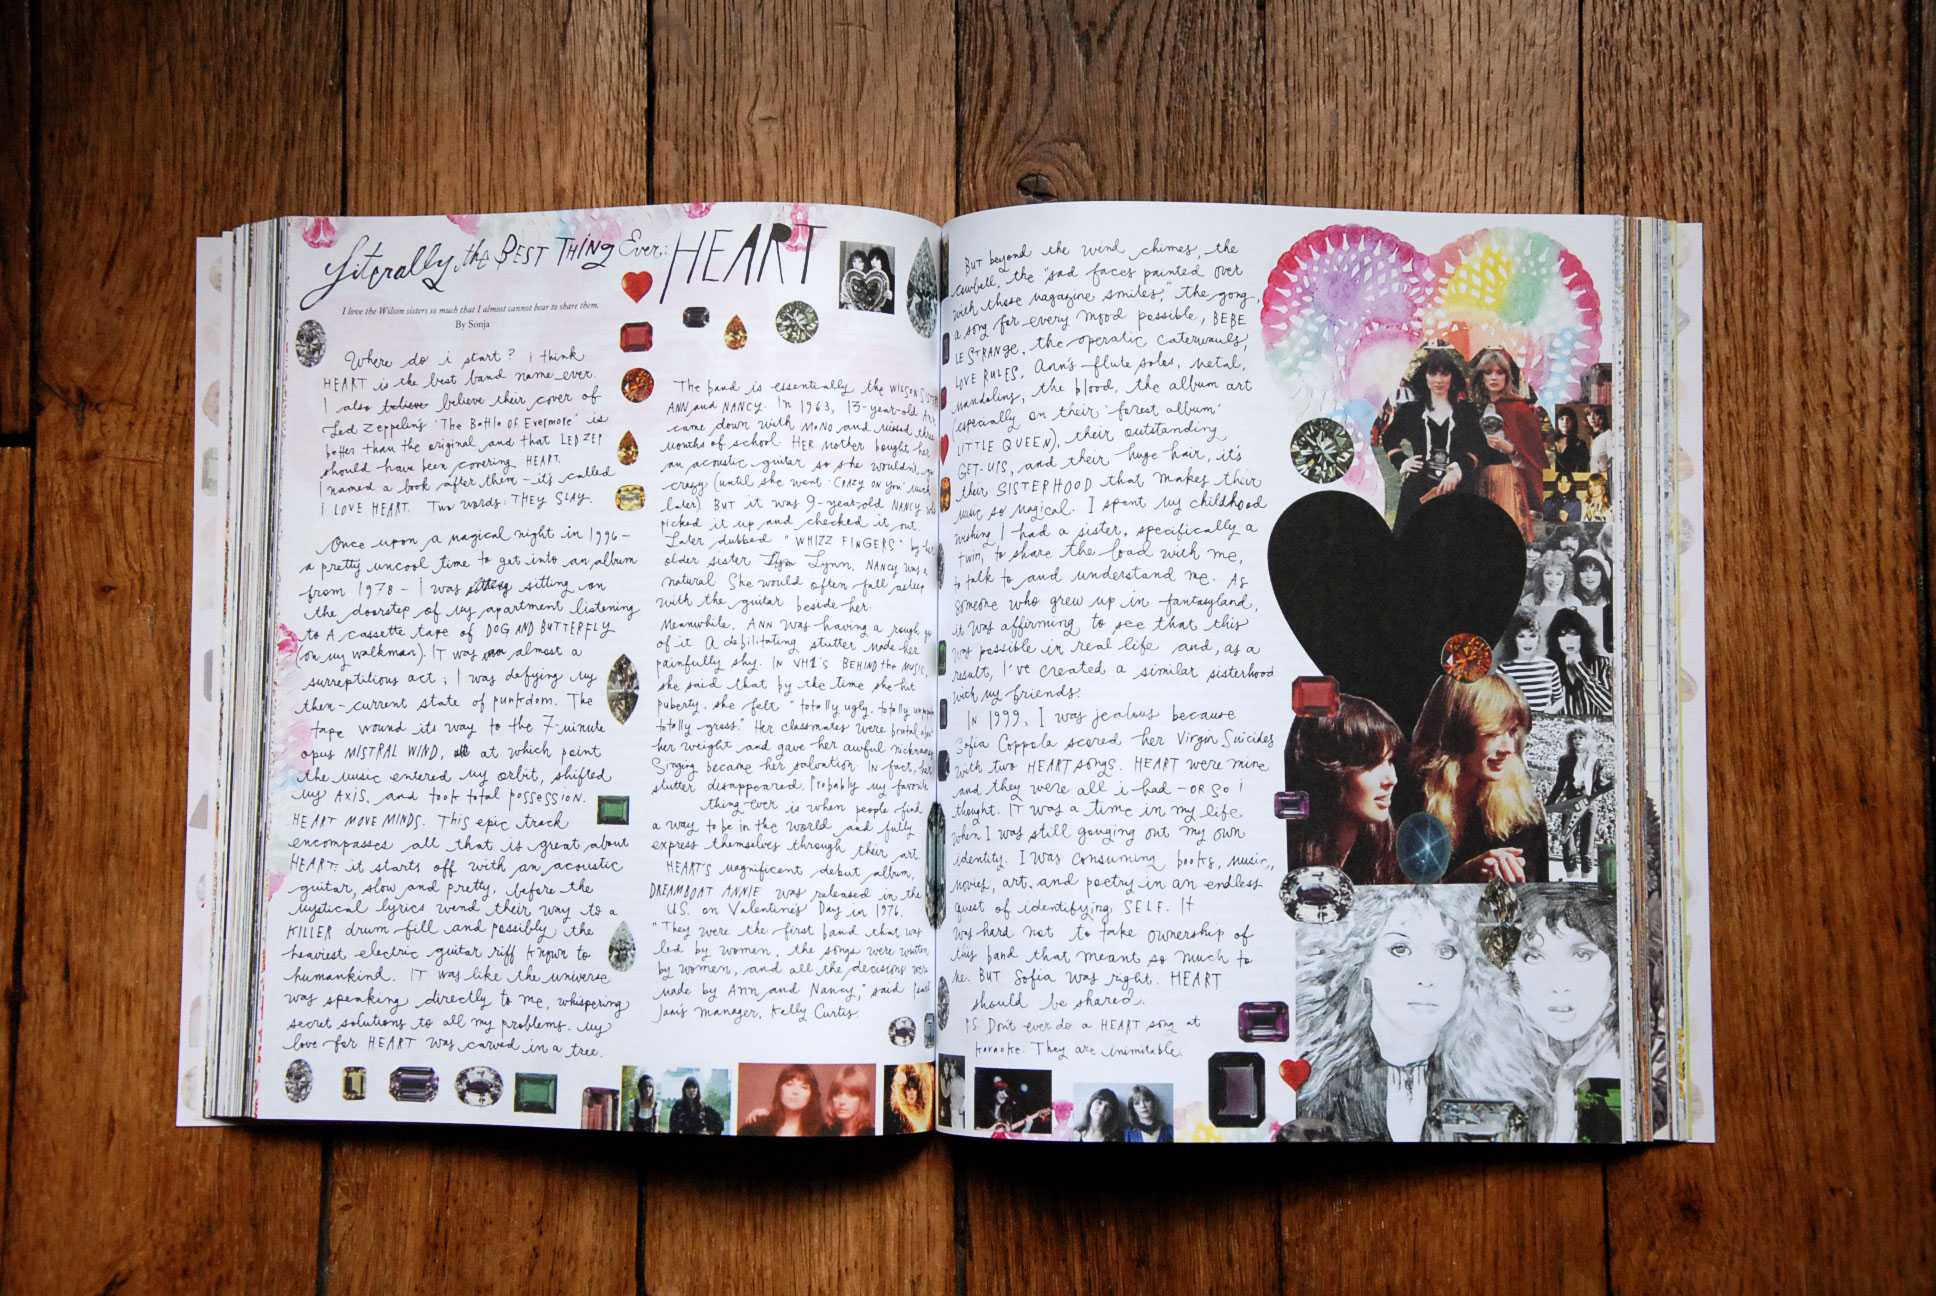 Literally the BEST THING Ever: HEART
I love the Wilson sisters so much that I almost cannot bear to share them.
By Sonja
Where do i start? I think
HEART is the best band name ever.
I also believe their cover of
Led Zeppelin's 'The Battle of Evermore' is
better than the original and that LED ZEP
should have been covering HEART.
I named a book after them – it's called
I LOVE HEART. Two words: THEY SLAY.
Once upon a magical night in 1996 –
a pretty uncool time to get into an album
from 1978 – I was sitting on
the doorstep of my apartment listening
to A cassette tape of DOG AND BUTTERFLY
(on my walkman). IT was almost a
surreptitious act; I was defying my
then-current state of punkdom. The
tape wound its way to the 7-minute
opus MISTRAL WIND, at which point
the music entered my orbit, shifted
my AXIS, and took total possession.
HEART MOVE MINDS. This epic track
encompasses all that is great about
HEART: it starts off with an acoustic
guitar, slow and pretty, before the
mystical lyrics wend their way to a
KILLER drum fill and possibly the
heaviest electric guitar riff known to
humankind. IT was like the universe
was speaking directly to me, whispering
secret solutions to all my problems. My
love for HEART was carved in a tree.
The band is essentially the WILSON
ANN and NANCY. In 1963, 13-year-old
came down with MONO and missed three
months of school. HER mother bought her
an acoustic guitar so she wouldn't go
crazy (until she went 'CRAZY ON YOU' much
later) BUT it was 9-year-old NANCY who
picked it up and checked it out.
Later dubbed "WHIZZ FINGERS" by her
older sister Lynn, NANCY was a
natural She would often fall asleep
with the guitar beside her.
Meanwhile, ANN was having a rough go
of it A debilitating stutter made her
painfully shy. IN VH1's BEHIND the MUSIC,
she said that by the time she hit
puberty, she felt "totally ugly, totally
totally gross." Her classmates were brutal about
her weight and gave her awful nicknames
Singing became her salvation IN fact, her
stutter disappeared. Probably my favorite
thing ever is when people find
a way to be in the world and fully
express themselves through their art
HEART'S magnificent debut album,
DREAMBOAT ANNIE was released in the
U.S. on Valentine's Day in 1976.
"They were the first band that was
led by women, the songs were written
by women, and all the decisions were
made by Ann and Nancy," said
manager, Kelly Curtis.
BUT beyond the wind chimes, the
cowbell, the "sad faces painted over
with those magazine smiles," the gong,
a song for every mood possible, BEBE
LE STRANGE, the operatic caterwauls,
LOVE RULES, Ann's flute solos, metal,
mandolins, the blood, the album art
(especially on their 'forest album'
LITTLE QUEEN), their outstanding
GET-UPS, and their huge hair, it's
their SISTERHOOD that makes their
music so magical. I spent my childhood
wishing I had a sister, specifically a
twin, to share the load with me,
to talk to and understand me. As
someone who grew up in fantasyland,
it was affirming to see that this
was possible in real life and, as a
result, I've created a similar sisterhood
with my friends.
IN 1999, I was jealous because
Sofia Coppola scored her Virgin Suicides
with two HEART songs. HEART were mine
and they were all i had – OR SO I
thought. IT was a time in my life
when I was still gouging out my own
identity. I was consuming books, music,
movies, art, and poetry in an endless
quest of identifying SELF. It
was hard not to take ownership of
this band that meant so much to
me. BUT Sofia was right. HEART
should be shared.
PS Don't ever do a HEART song at
karaoke. They are inimitable.